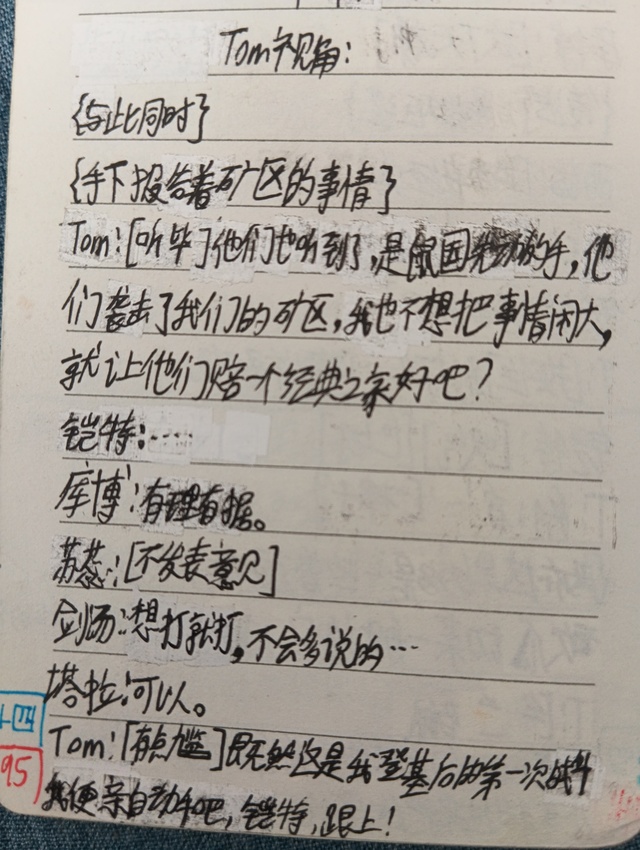 Tom视角:
{与此同时}
{手下报告着矿区的事情}
Tom:[听毕]他们也听到了,是鼠国先动的手,他
们袭击了我们的矿区,我也不想把事情闹大,
就让他们赔一个经典之家好吧?
铠特:....
库博:有理有据。
苏蕊:[不发表意见]
剑汤:想打就打,不会多说的…
塔拉:可以。
Tom:[有点尴]既然这是我登基后的第一次战斗
我便亲自动手吧,铠特,跟上!
十四
95